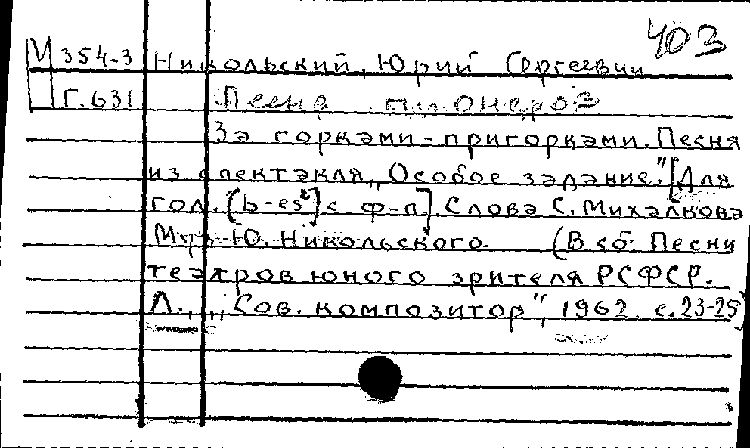 403
М 354-3 Никольский, Юрий Сергеевич
Г.631 Песня пионеров
За горками-пригорками. Песня
из спектакля „Особое задание." [Для
гол. (b-es²) с ф-п]. Слова С. Михалкова
Муз. Ю. Никольского (В сб. Песни
театров юного зрителя РСФСР.
Л., „Сов. композитор", 1962. с. 23-25)